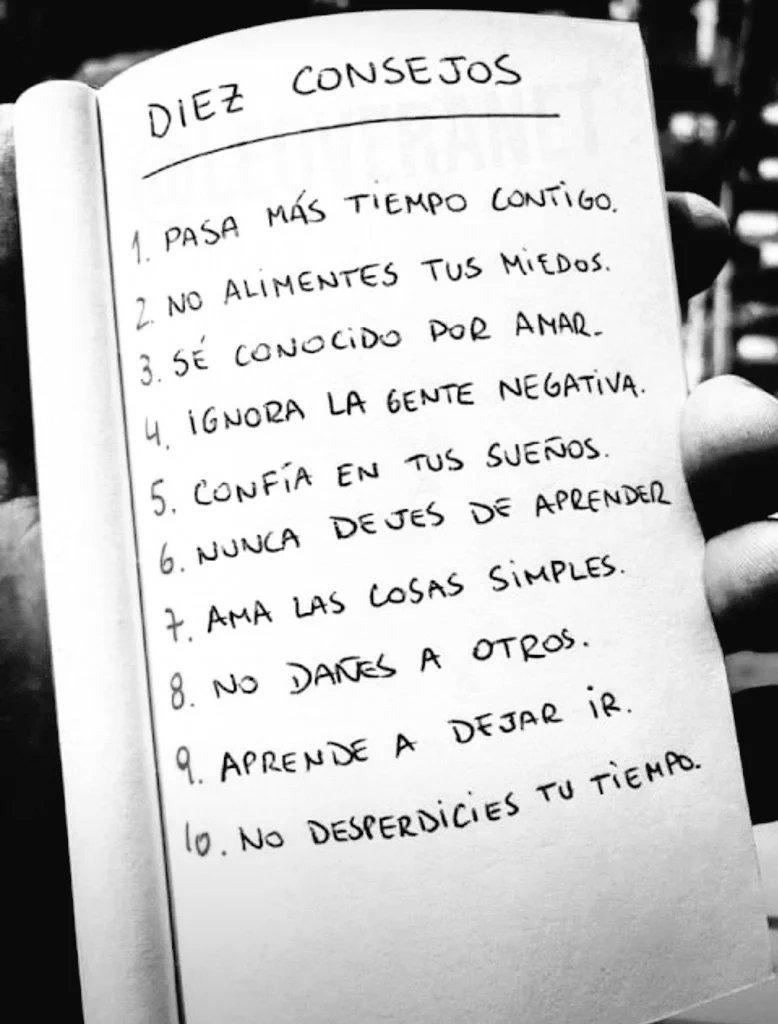 DIEZ CONSEJOS
1. PASA MÁS TIEMPO CONTIGO.
2. NO ALIMENTES TUS MIEDOS.
3. SÉ CONOCIDO POR AMAR.
4. IGNORA LA GENTE NEGATIVA.
5. CONFÍA EN TUS SUEÑOS.
6. NUNCA DEJES DE APRENDER
7. AMA LAS COSAS SIMPLES.
8. NO DAÑES A OTROS.
9. APRENDE A DEJAR IR.
10. NO DESPERDICIES TU TIEMPO.